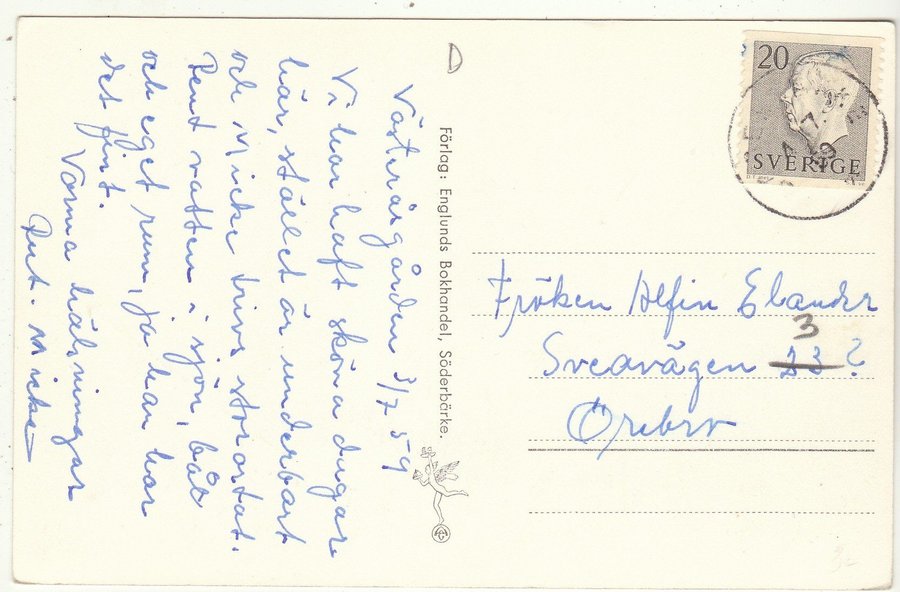 Västerårgården 3/7 59
Vi har haft sköna dagar
här, stället är underbart
och Micke trivs storartat.
Rent vatten i sjön, båt
och eget rum, ja han har
det fint.
Varma hälsningar
Rut. Micke
Förlag: Englunds Bokhandel, Söderbärke.
20
SVERIGE
Fröken Elander
3
Sveavägen 23 ?
Örebro